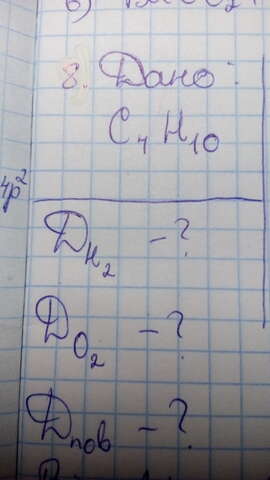 8. Дано:
C₄H₁₀
4p²
D_H₂ – ?
D_O₂ – ?
D_пов – ?